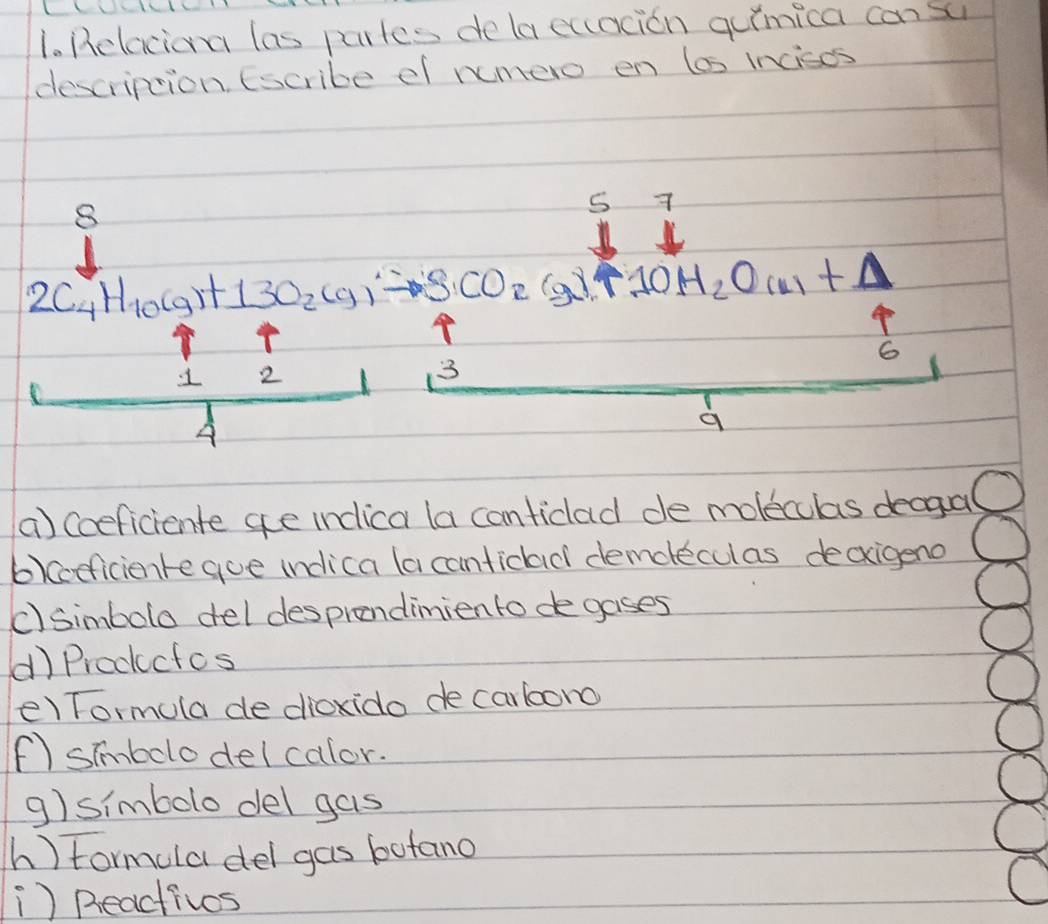 1. Relaciona las partes de la ecuación química con su
descripcion. Escribe el numero en los incisos
8 5 7
2C₄H₁₀(g)+13O₂(g)→8CO₂(g)↑10H₂O(l)+Δ
1 2 3 6
4 9
a) Coeficiente que indica la cantidad de moléculas de agua
b) coeficiente que indica la cantidad de moléculas de oxigeno
c) simbolo del desprendimiento de gases
d) Productos
e) Formula de dioxido de carbono
f) símbolo del calor.
g) símbolo del gas
h) formula del gas butano
i) Reactivos